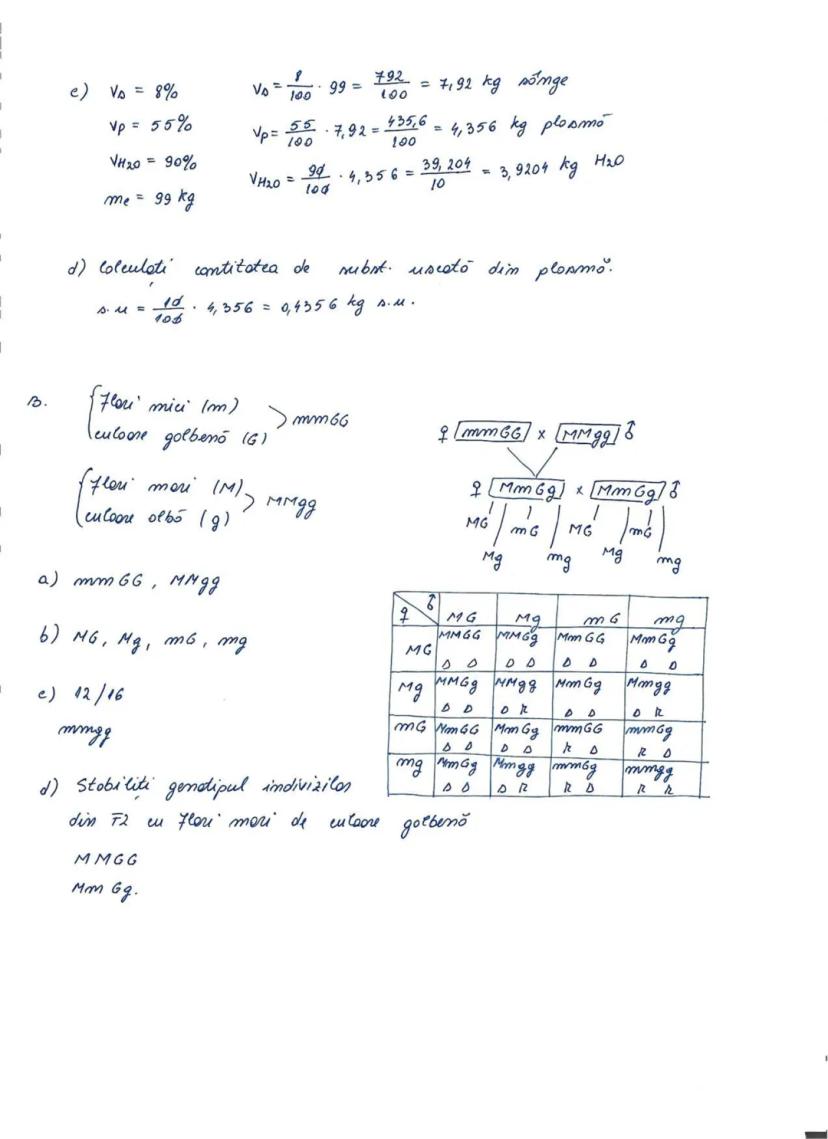 c) Vs = 8%    Vs = 8/100 · 99 = 792/100 = 7,92 kg sânge
Vp = 55%    Vp = 55/100 · 7,92 = 435,6/100 = 4,356 kg plasmă
VH2O = 90%    VH2O = 90/100 · 4,356 = 39,204/10 = 3,9204 kg H2O
me = 99 kg
d) Calculați cantitatea de subst. uscată din plasmă.
s.u = 10/100 · 4,356 = 0,4356 kg s.u.
B. { Flori mici (m)
culoare galbenă (G) > mmGG
{ Flori mari (M)
culoare albă (g) > MMgg
♀ mmGG x MMgg ♂
♀ MmGg x MmGg ♂
MG mG MG mG
Mg mg Mg mg
a) mmGG, MMgg
b) MG, Mg, mG, mg
c) 12/16
mmgg
d) Stabiliți genotipul indivizilor
din F2 cu flori mari de culoare galbenă
MMGG
MmGg.
♀ ♂ MG Mg mG mg
MG MMGG MMGg MmGG MmGg
D D D D D D D D
Mg MMGg MMgg MmGg Mmgg
D D D R D D D R
mG MmGG MmGg mmGG mmGg
D D D D R D R D
mg MmGg Mmgg mmGg mmgg
D D D R R D R R